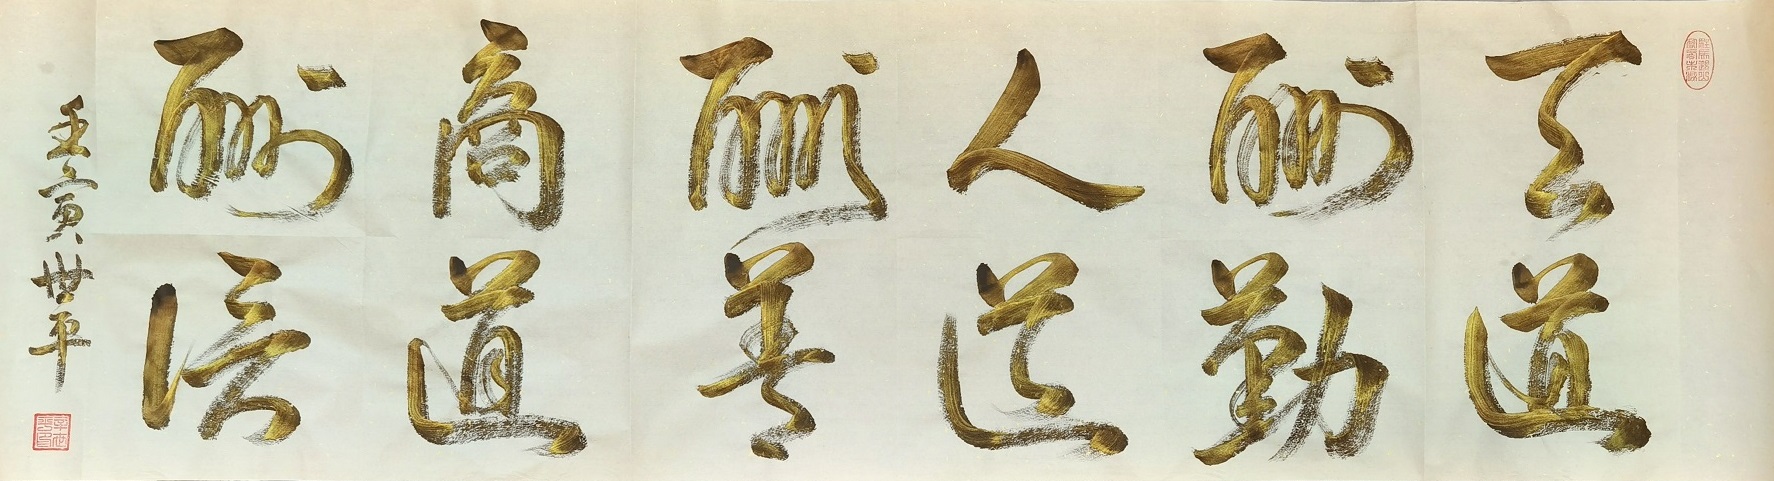 天道
酬勤
人道
酬善
商道
酬信
壬寅世平